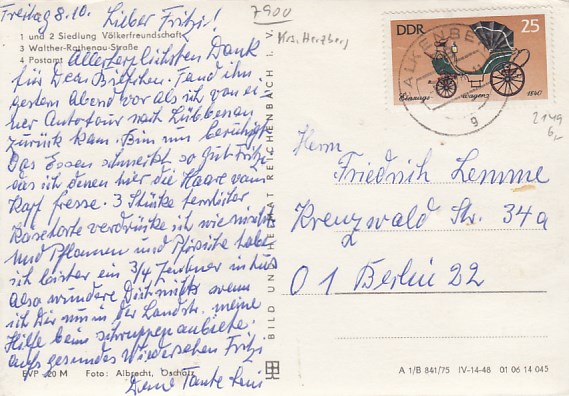 Freitag 8.10. Lieber Fritzi!
1 und 2 Siedlung Völkerfreundschaft
3 Walther-Rathenau-Straße
4 Postamt
Allerherzlichsten Dank
für Dein Briefchen. Fand ihn
gestern Abend vor als ich von ei
ner Autotour nach Lübbenau
zurück kam. Bin nun beruhigt
Das Essen schmeckt so gut Fritzi
das ich denen hier die Haare vom
Kopf fresse. 3 Stücke
verdrücke ich wie nichts
und Pflaumen und Pfirsiche habe
ich bisher ein 3/4 Zentner intus
Also wundere Dich nicht wenn
ich Dir nun in der Landstr. meine
Hilfe beim schruppen anbiete.
Aufs gesundes Wiedersehen Fritzi
Deine Tante
EVP -,20 M Foto: Albrecht, Oschatz
BILD UND HEIMAT REICHENBACH I. V.
7900
Krs. Herzberg
DDR 25
1840
FALKENBERG
g
2149
6,-
Herrn
Friedrich Lemme
Kreuzwald Str. 34a
0 1 Berlin 22
A 1/B 841/75 IV-14-48 01 06 14 045